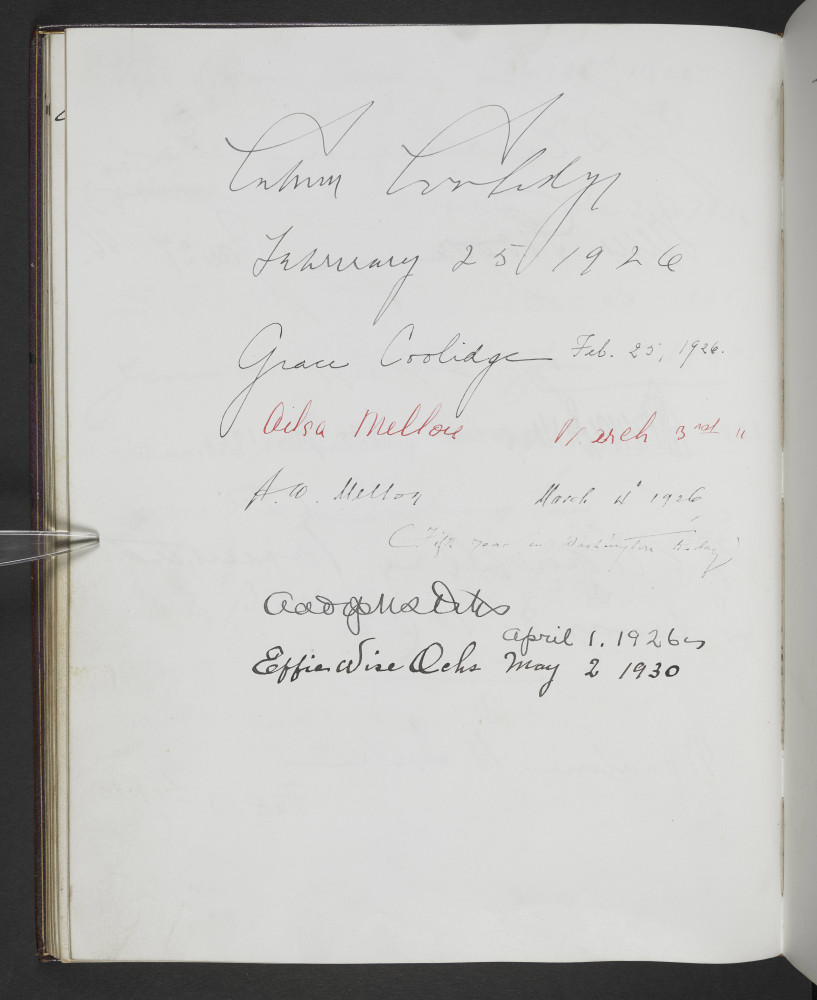 Calvin Coolidge
February 25 1926
Grace Coolidge Feb. 25, 1926.
Ailsa Mellon March 3rd "
A. W. Mellon March 4" 1926
(Fifth year in Washington today)
Adolph S Ochs
April 1. 1926
Effie Wise Ochs May 2 1930